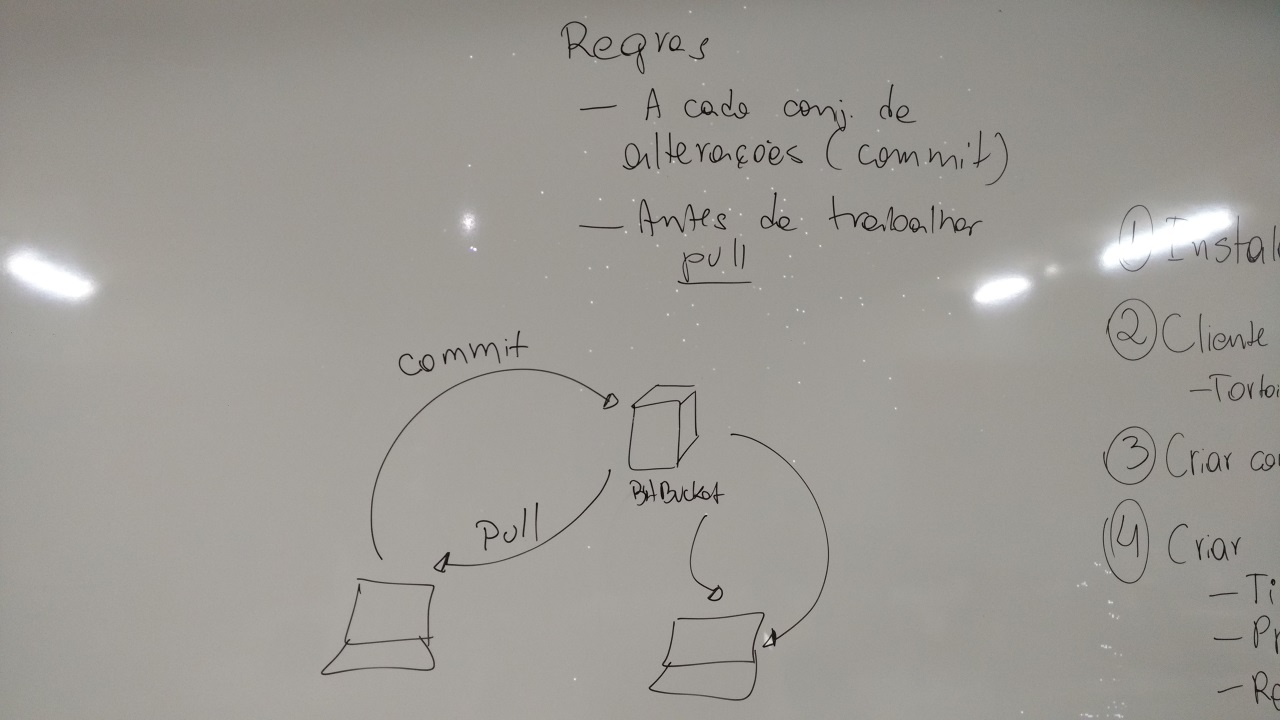 Regras
— A cada conj. de
alterações (commit)
— Antes de trabalhar
pull
commit
BitBucket
Pull
① Instal
② Cliente
— Tortoi
③ Criar co
④ Criar
— Ti
— Pr
— Re